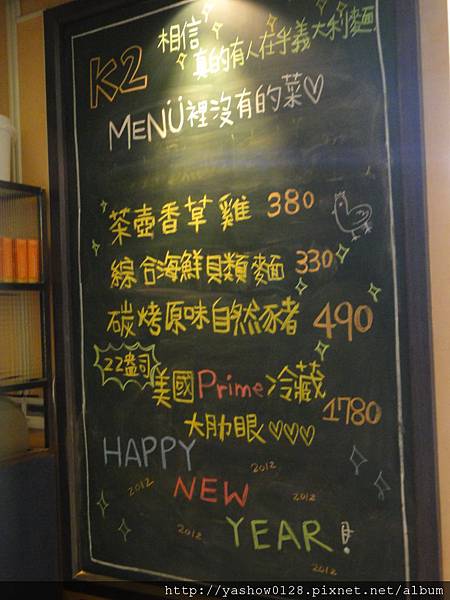 K2 相信
真的有人在乎義大利麵
MENÜ裡沒有的菜♡
茶壺香草雞 380
綜合海鮮貝類麵 330
碳烤原味自然豬 490
22盎司
美國Prime冷藏
大肋眼♡♡♡ 1780
HAPPY
2012
2012 NEW 2012
2012 YEAR!
2012
http://yashow0128.pixnet.net/album